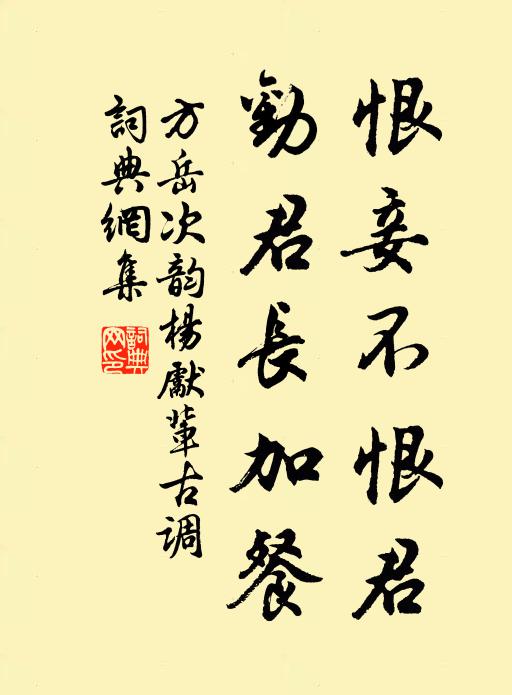 恨妾不恨君
勸君長加餐
方岳次韵楊獻輩古調
詞典網集
詞典網印